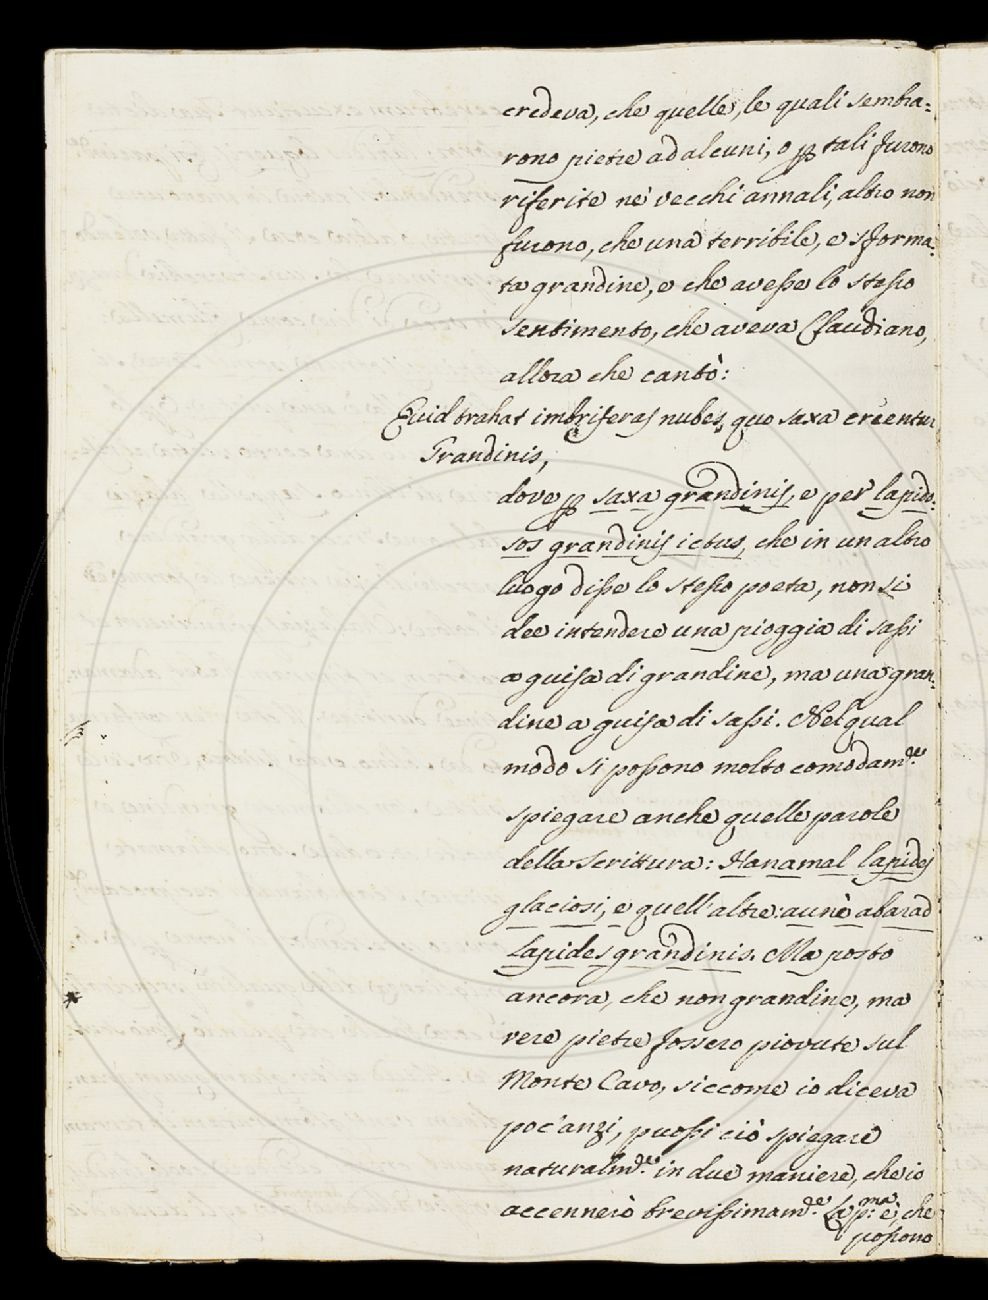 credeva, che quelle, le quali sembra=
rono pietre ad alcuni, o p tali furono
riferite ne' vecchi annali, altro non
furono, che una terribile, e sforma=
ta grandine, e che avesse lo stesso
sentimento, che aveva Claudiano,
allora che cantò:
Quid trahat imbriferas nubes, quo saxa creentur
Grandinis,
dove p saxa grandinis, e per lapido=
sos grandinis ictus, che in un altro
luogo disse lo stesso poeta, non si
dee intendere una pioggia di sassi
a guisa di grandine, ma una gran=
dine a guisa di sassi. Nel qual
modo si possono molto comodam.te
spiegare anche quelle parole
della Scrittura: Hanamal lapides
glaciosi, e quell' altre: aune abarad
Lapides grandinis. Ma posto
ancora, che non grandine, ma
vere pietre fossero piovute sul
Monte Cavo, siccome io diceva
poc'anzi, puossi ciò spiegare
naturalm.te in due maniere, che io
accennerò brevissimam.te La p.ma è, che
possono